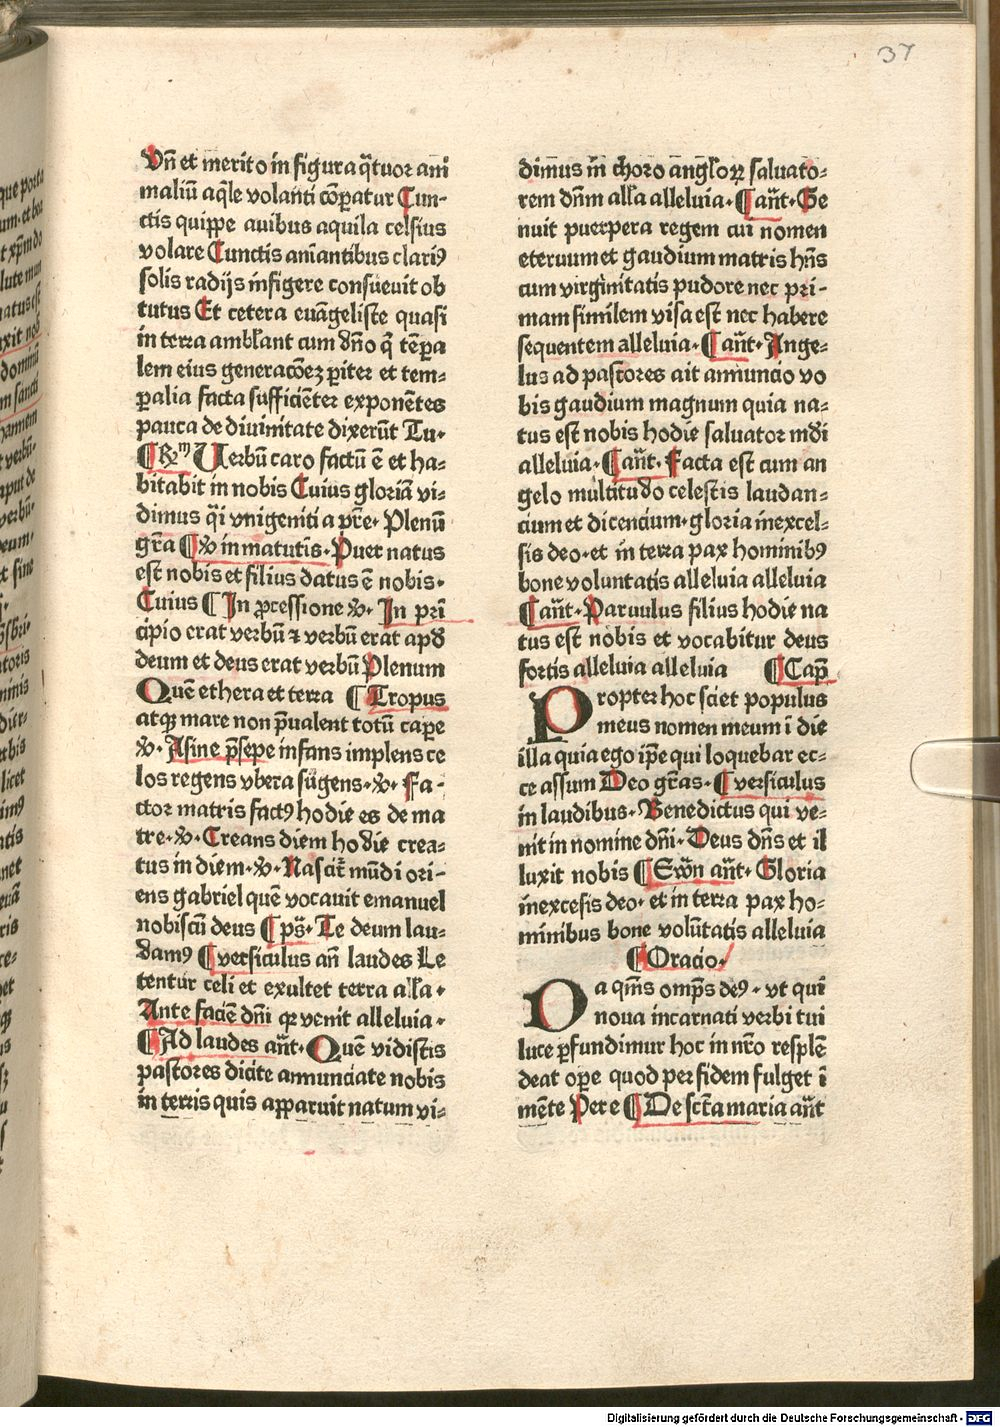 37
Vñ et merito in figura q̄tuor ani
maliū aq̄le volanti cōꝑatur Cun-
ctis quippe auibus aquila celsius
volare Cunctis aniantibus clariꝰ
solis radijs infigere consueuit ob
tutus Et cetera euāgeliste quasi
in terra ambl̄ant cum dn̄o q̄ tēꝑa
lem eius generacōeꝫ ꝑiter et tem-
ꝑalia facta sufficiēter exponētes
pauca de diuinitate dixerūt Tu.
¶ Rm Uerbū caro factū ē et ha-
bitabit in nobis Cuius gloriā vi-
dimus q̄i vnigeniti a pr̄e. Plenū
gr̄a ¶ ꝟ in matutīs. Puer natus
est nobis et filius datus ē nobis.
Cuius ¶ In ꝓcessione ꝟ. In pri
cipio erat verbū ⁊ verbū erat apđ
deum et deus erat verbū Plenum
Quē ethera et terra ¶ Tropus
atqꝫ mare non p̄ualent totū caꝑe
ꝟ. Asine p̄sepe infans implens ce
los regens vbera sūgens. ꝟ. Fa-
ctor matris factꝰ hodie es de ma
tre. ꝟ. Creans diem hodie crea-
tus in diem. ꝟ. Nascit̄ mūdi ori-
ens gabriel quē vocauit emanuel
nobiscū deus ¶ ps̄. Te deum lau-
damꝰ ¶ versiculus añ laudes Le
tentur celi et exultet terra alla.
Ante faciē dn̄i qꝛ venit alleluia.
¶ Ad laudes añt. Quē vidistis
pastores dicite annunciate nobis
in terris quis apparuit natum vi-
dimus in choro angl̄oꝝ saluato-
rem dn̄m alla alleluia. ¶ añt. Ge
nuit puerpera regem cui nomen
eternum et gaudium matris hn̄s
cum virginitatis pudore nec pri-
mam similem visa est nec habere
sequentem alleluia. ¶ añt. Ange-
lus ad pastores ait annuncio vo
bis gaudium magnum quia na-
tus est nobis hodie saluator mđi
alleluia. ¶ añt. Facta est cum an
gelo multitudo celestis laudan-
cium et dicencium. gloria in excel-
sis deo. et in terra pax hominibꝰ
bone voluntatis alleluia alleluia
¶ añt. Paruulus filius hodie na
tus est nobis et vocabitur deus
fortis alleluia alleluia ¶ Cap̄
Propter hoc sciet populus
meus nomen meum ī die
illa quia ego ip̄e qui loquebar ec-
ce assum Deo gr̄as. ¶ versiculus
in laudibus. Benedictus qui ve-
nit in nomine dn̄i. Deus dn̄s et il
luxit nobis ¶ Ewn̄ añt. Gloria
in excelsis deo. et in terra pax ho-
minibus bone volūtatis alleluia
¶ Oracio.
Da qm̄s omp̄s deꝰ. vt qui
noua incarnati verbi tui
luce ꝑfundimur hoc in nr̄o resplē
deat oꝑe quod per fidem fulget ī
mēte Per e ¶ De sctā maria añt
Digitalisierung gefördert durch die Deutsche Forschungsgemeinschaft - DFG